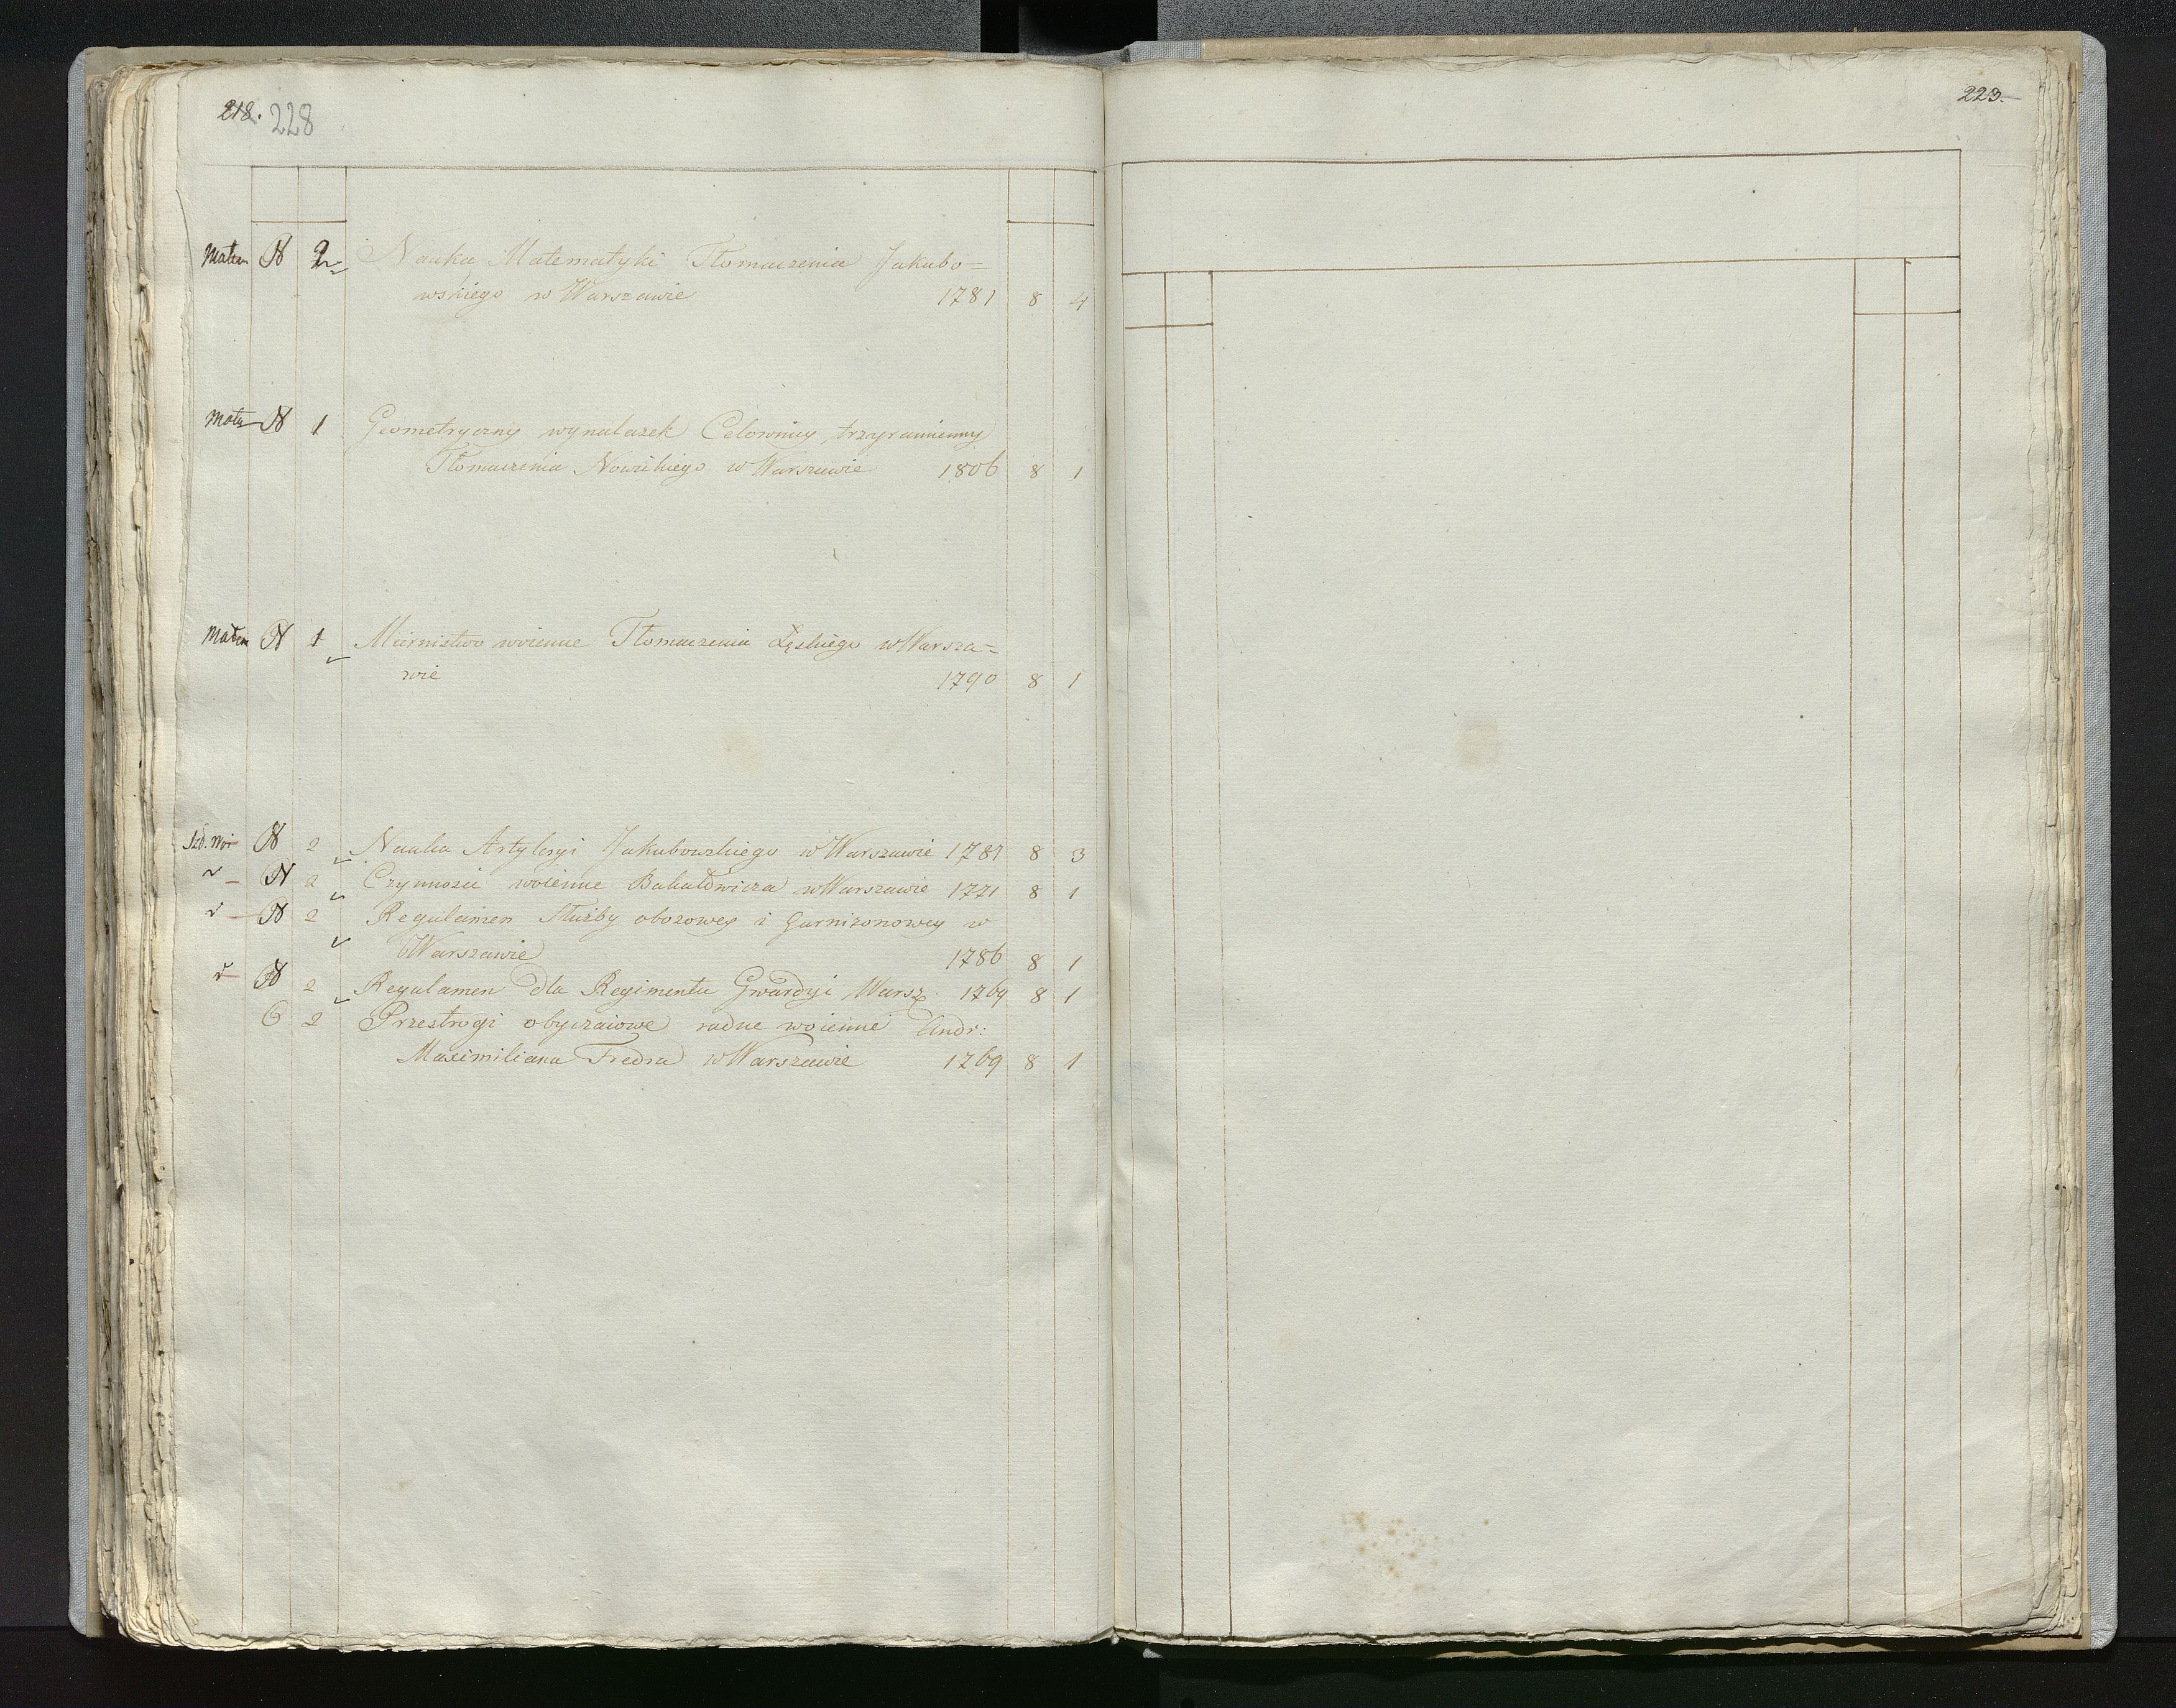 218. 228
Matem N 2 Nauka Matematyki Tłomaczenia Jakubo=
wskiego w Warszawie 1781 8 4
Matz N 1 Geometryczny wynalazek Celownicy trzyramienney
Tłomaczenia Nowickiego w Warszawie 1806 8 1
Matem N 1 Miernistwo woienne Tłomaczenia Łęskiego w Warsza=
wie 1790 8 1
N 2 Nauka Artyleryi Jakubowskiego w Warszawie 1781 8 3
N 2 Czynnosci woienne Bakałowicza w Warszawie 1771 8 1
N 2 Regulamen Służby obozowey i Garnizonowey w
Warszawie 1786 8 1
N 2 Regulamen dla Regimentu Gwardyi Warsz 1769 8 1
G 2 Przestrogi obyczaiowe radne woienne Andr:
Maximiliana Fredra w Warszawie 1769 8 1
223.